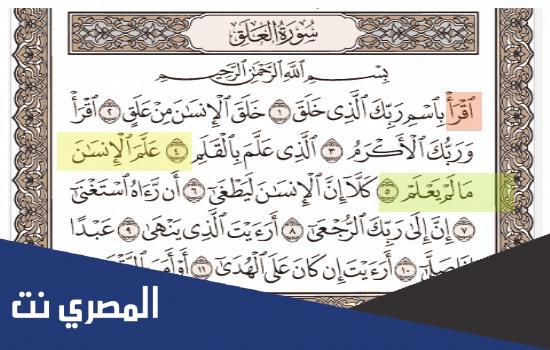 سُورَةُ العَلَقِ
بِسۡمِ ٱللَّهِ ٱلرَّحۡمَٰنِ ٱلرَّحِيمِ
ٱقۡرَأۡ بِٱسۡمِ رَبِّكَ ٱلَّذِي خَلَقَ ١ خَلَقَ ٱلۡإِنسَٰنَ مِنۡ عَلَقٍ ٢ ٱقۡرَأۡ
وَرَبُّكَ ٱلۡأَكۡرَمُ ٣ ٱلَّذِي عَلَّمَ بِٱلۡقَلَمِ ٤ عَلَّمَ ٱلۡإِنسَٰنَ
مَا لَمۡ يَعۡلَمۡ ٥ كَلَّآ إِنَّ ٱلۡإِنسَٰنَ لَيَطۡغَىٰٓ ٦ أَن رَّءَاهُ ٱسۡتَغۡنَىٰٓ
٧ إِنَّ إِلَىٰ رَبِّكَ ٱلرُّجۡعَىٰٓ ٨ أَرَءَيۡتَ ٱلَّذِي يَنۡهَىٰ ٩ عَبۡدًا
إِذَا صَلَّىٰٓ ١٠ أَرَءَيۡتَ إِن كَانَ عَلَى ٱلۡهُدَىٰٓ ١١ أَوۡ أَمَرَ
المصري نت